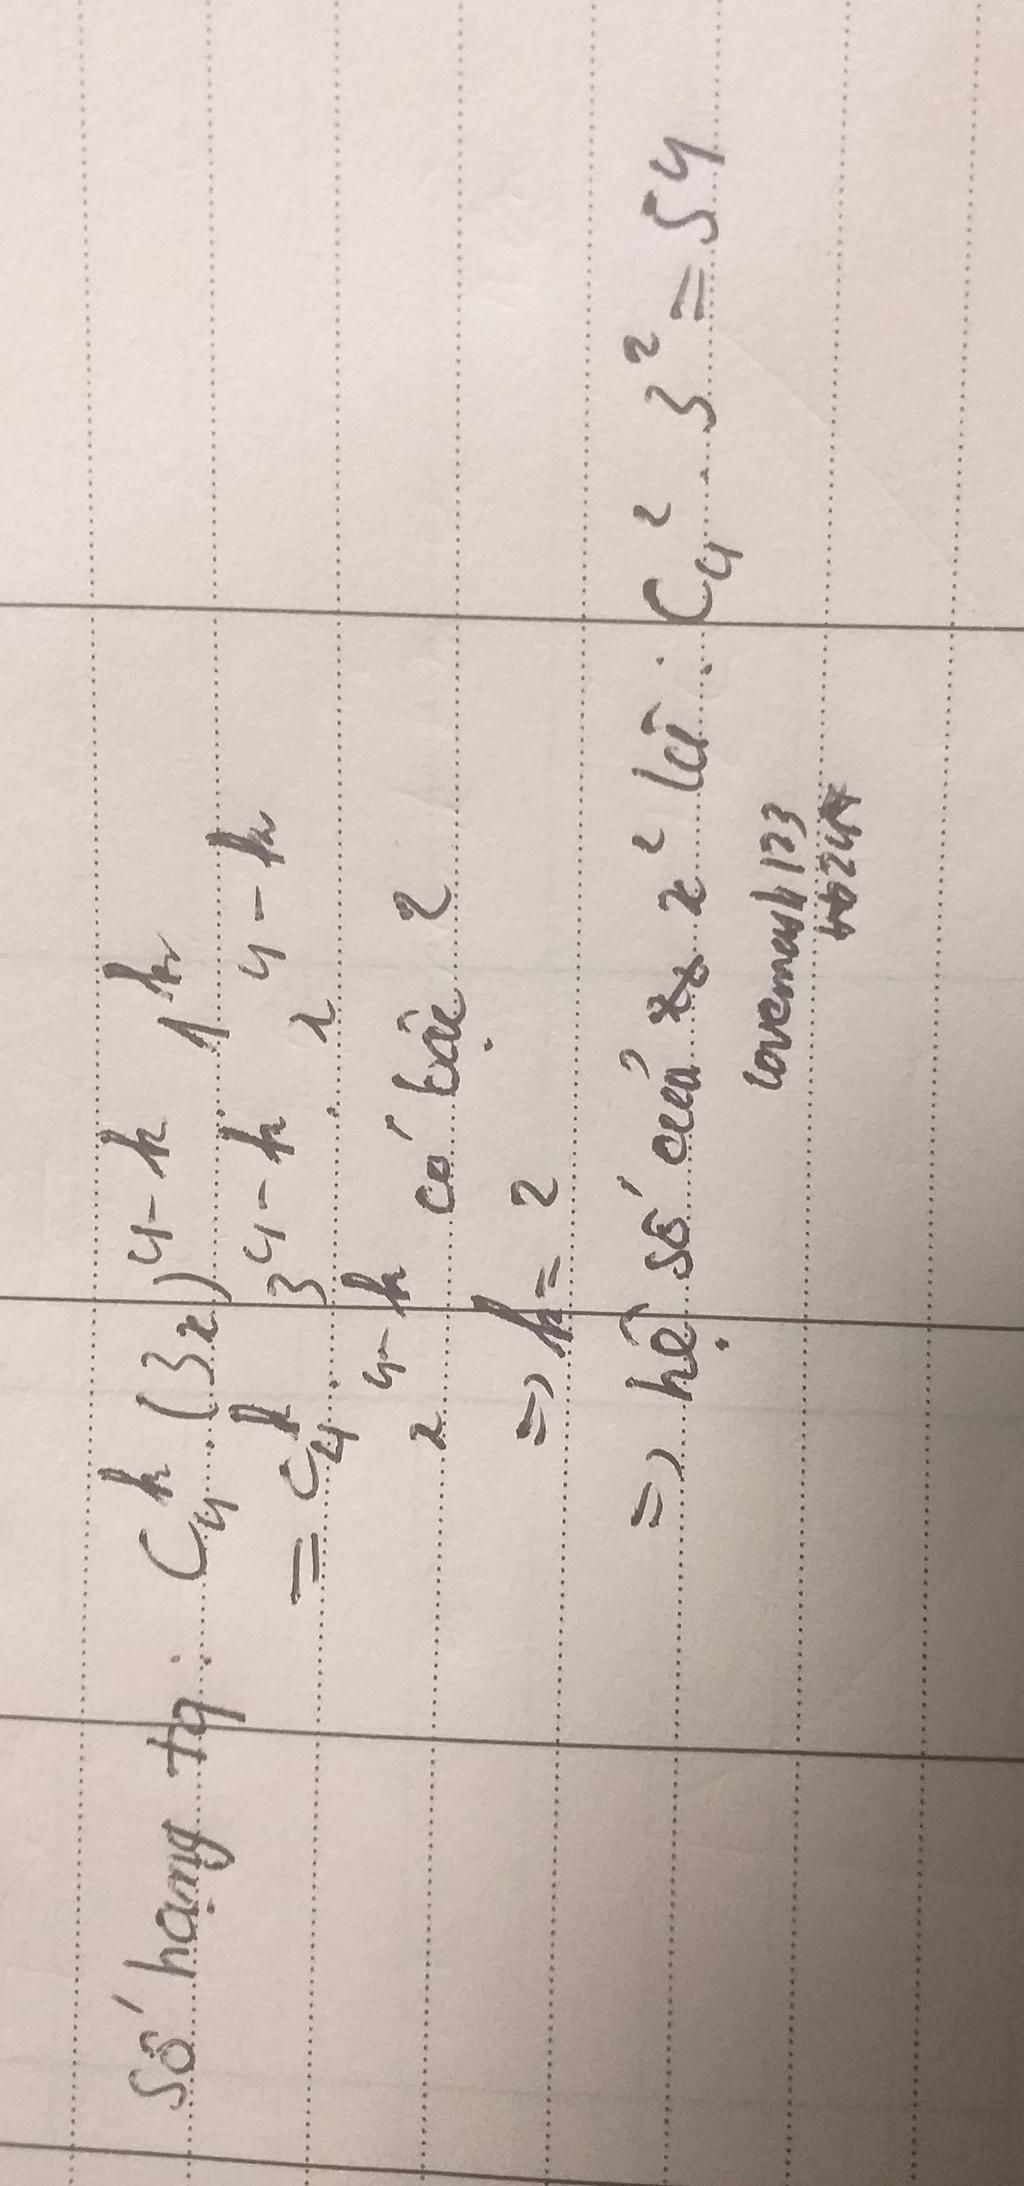 Số hạng tq: C₄ᵏ.(3x)⁴⁻ᵏ.1ᵏ
= C₄ᵏ.3⁴⁻ᵏ.x⁴⁻ᵏ
x⁴⁻ᵏ có bậc 2
=> k = 2
=> hệ số của x² là: C₄².3² = 54
lovemath123